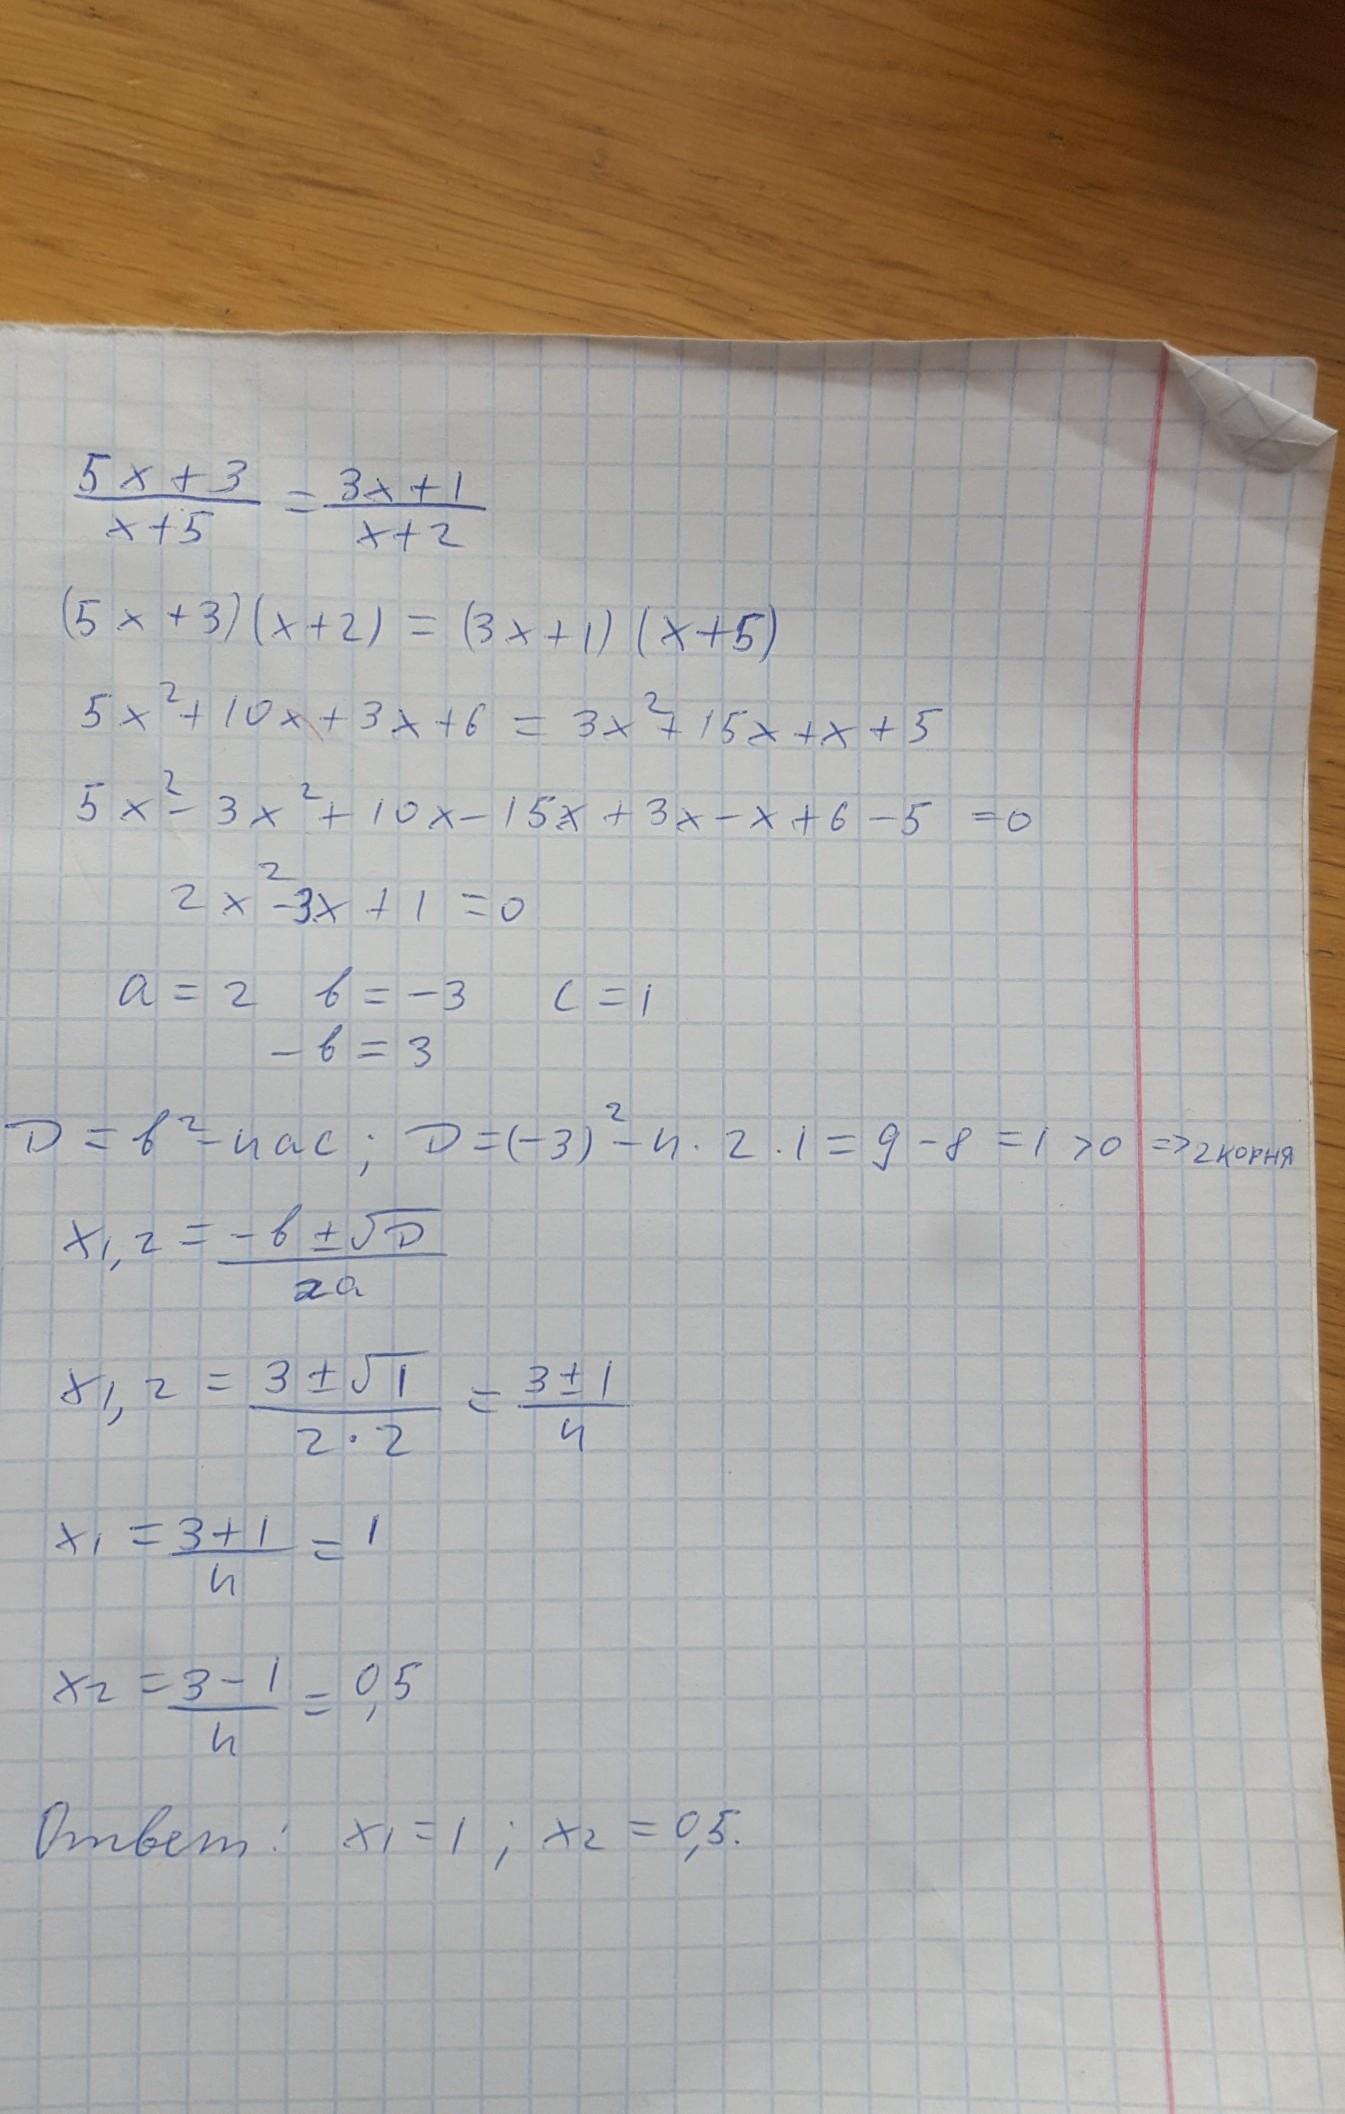 (5x+3)/(x+5) = (3x+1)/(x+2)
(5x+3)(x+2) = (3x+1)(x+5)
5x²+10x+3x+6 = 3x²+15x+x+5
5x²-3x²+10x-15x+3x-x+6-5=0
2x²-3x+1=0
a=2 в=-3 c=1
-в=3
D=в²-4ac; D=(-3)²-4·2·1=9-8=1>0 =>2корня
x1,2 = (-в±√D)/(2a)
x1,2 = (3±√1)/(2·2) = (3±1)/4
x1 = (3+1)/4 = 1
x2 = (3-1)/4 = 0,5
Ответ: x1=1; x2=0,5.